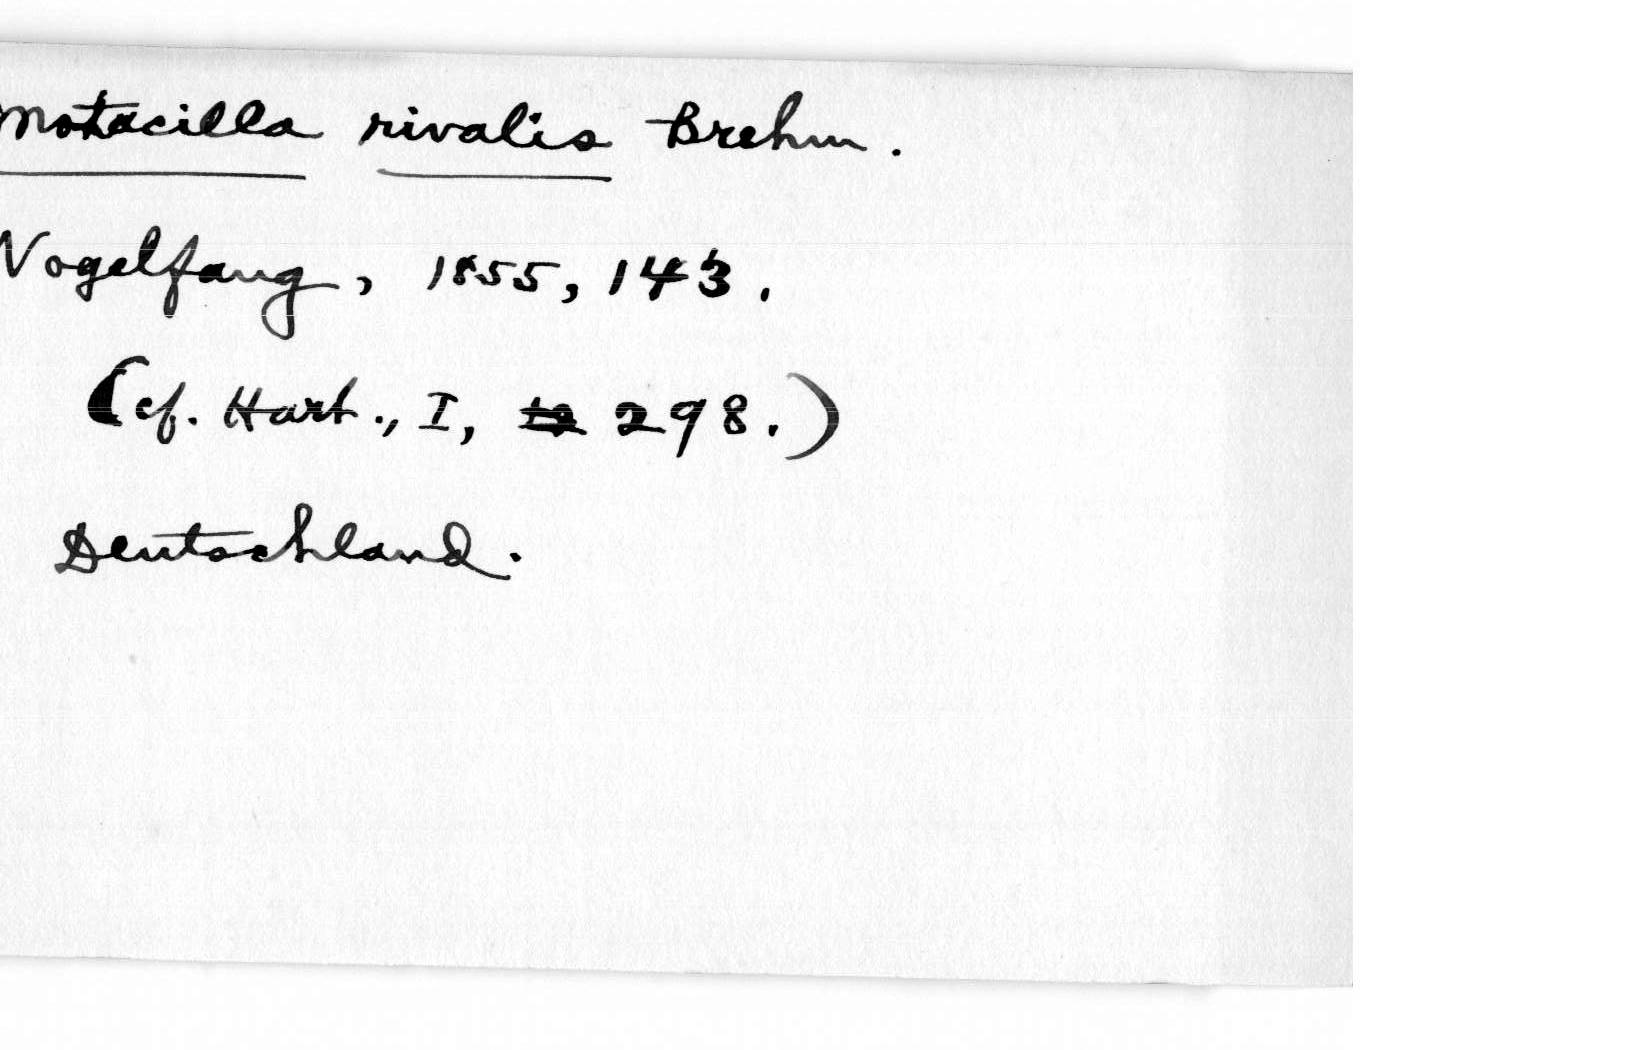 Motacilla rivalis Brehm.
Vogelfang, 1855, 143.
(cf. Hart., I, 298.)
Deutschland.